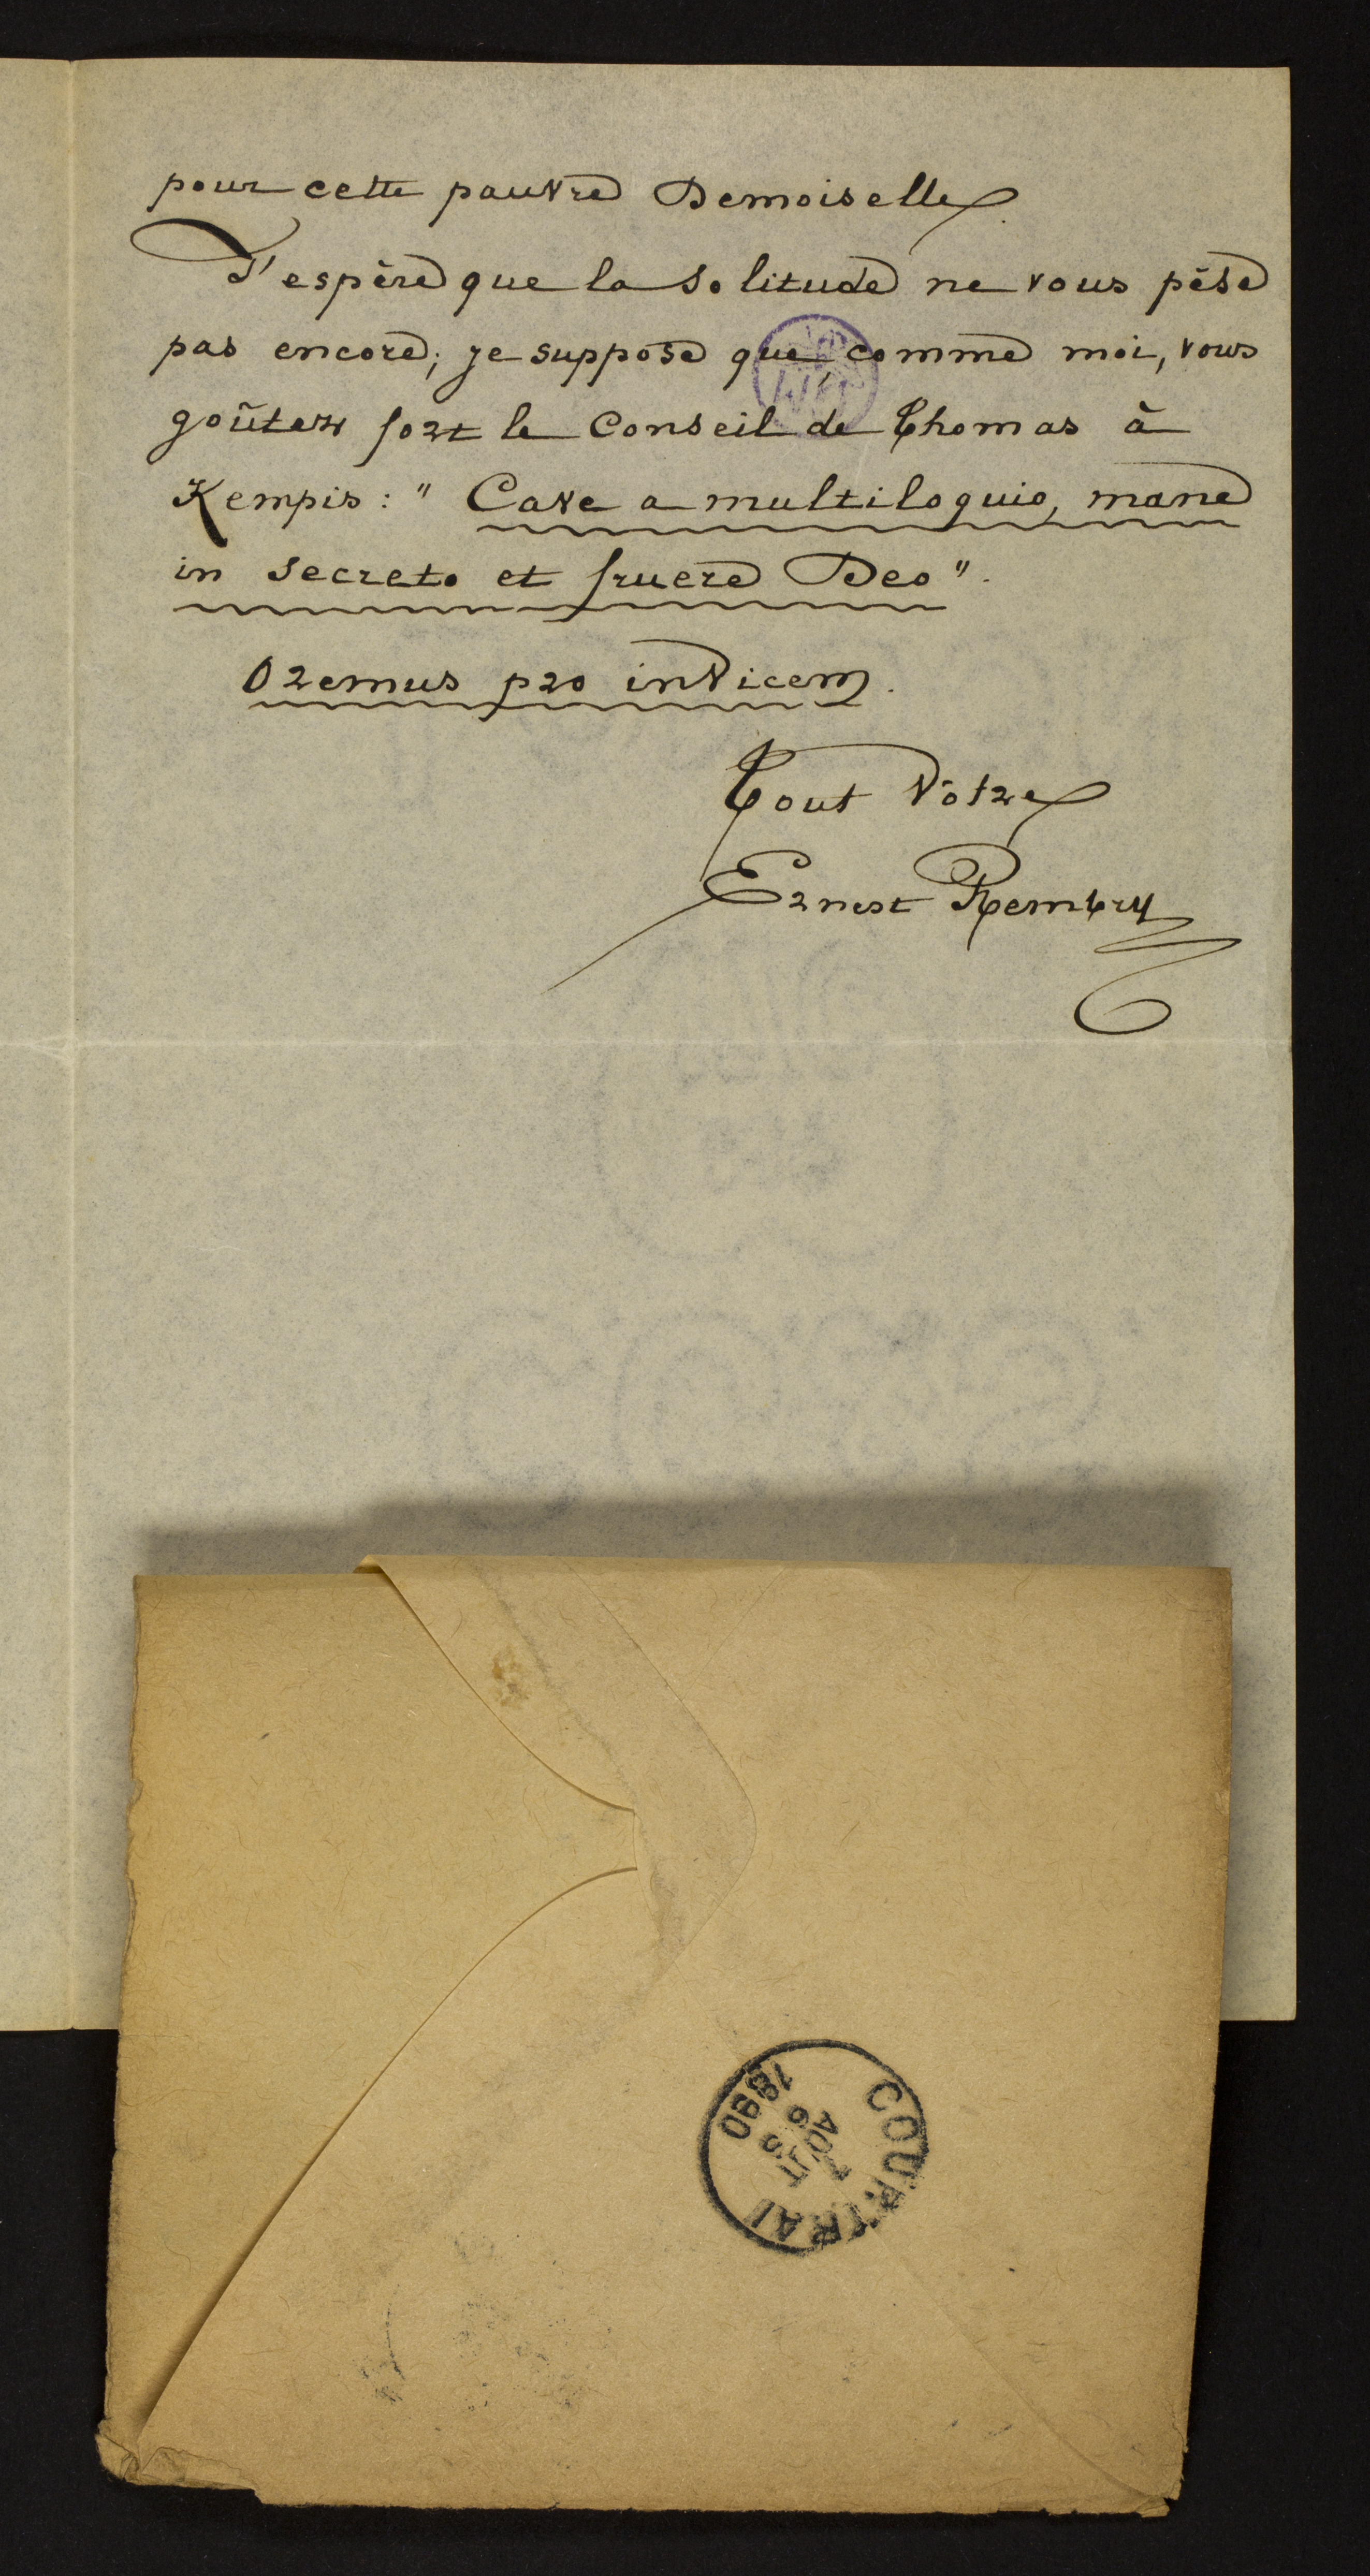 pour cette pauvre Demoiselle.
J'espère que la solitude ne vous pèse
pas encore; je suppose que, comme moi, vous
goûtez fort le Conseil de Thomas à
Kempis: " Cave a multiloquio, mane
in secreto et fruere Deo".
Oremus pro invicem.
Tout Vôtre
Ernest Rembry
COURTRAI
AOUT
1890